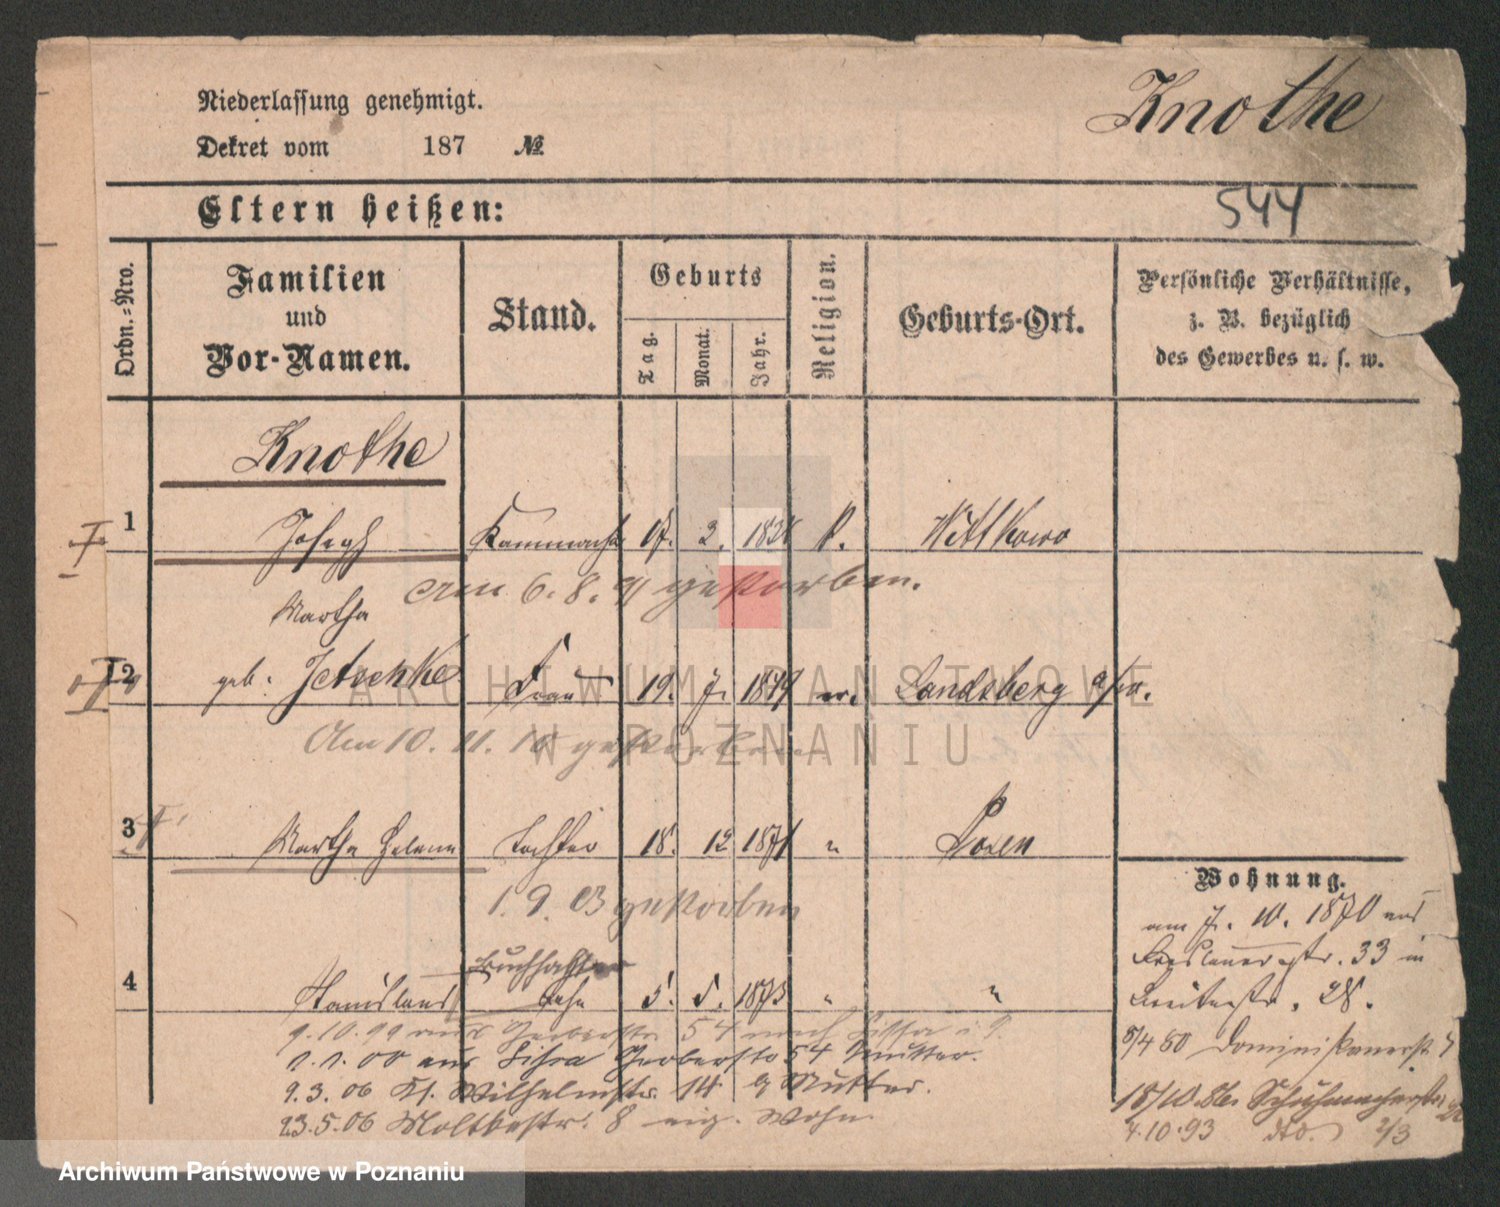 Niederlassung genehmigt.
Knothe
Dekret vom 187 №
Eltern heißen:
544
Ordn.=Nro.
Familien
und
Vor-Namen.
Stand.
Geburts
Tag.
Monat.
Jahr.
Religion.
Geburts-Ort.
Persönliche Verhältnisse,
z. B. bezüglich
des Gewerbes u. s. w.
Knothe
1 Joseph 2. Wittkowo
am 6. 8. gestorben.
Martha
2 geb. Jetschke Frau 19. 7. ev. Landsberg a/w.
Am 10. 11. gestorben
3 Martha Helene Tochter 18. 12 1871 " Posen
1. 9. 03 gestorben
Buchhalter
4 Stanislaus Sohn 5. 5. 1873 " "
9.10.99 aus Gerberstr. 54 nach Lissa
1.1.00 aus Lissa Gerberstr 54 Mutter.
9.3.06 Kl. Wilhelmstr. 14 b Mutter.
23.5.06 Moltkestr. 8 eig. Wohn.
Wohnung.
am 7. 10. 1870 aus
Breslauerstr. 33 in
Breitestr. 28.
8/4 80 Dominikanerstr 7
18/10.86. Schuhmacherstr
4.10.93 dto. 2/3
ARCHIWUM PAŃSTWOWE
W POZNANIU
Archiwum Państwowe w Poznaniu